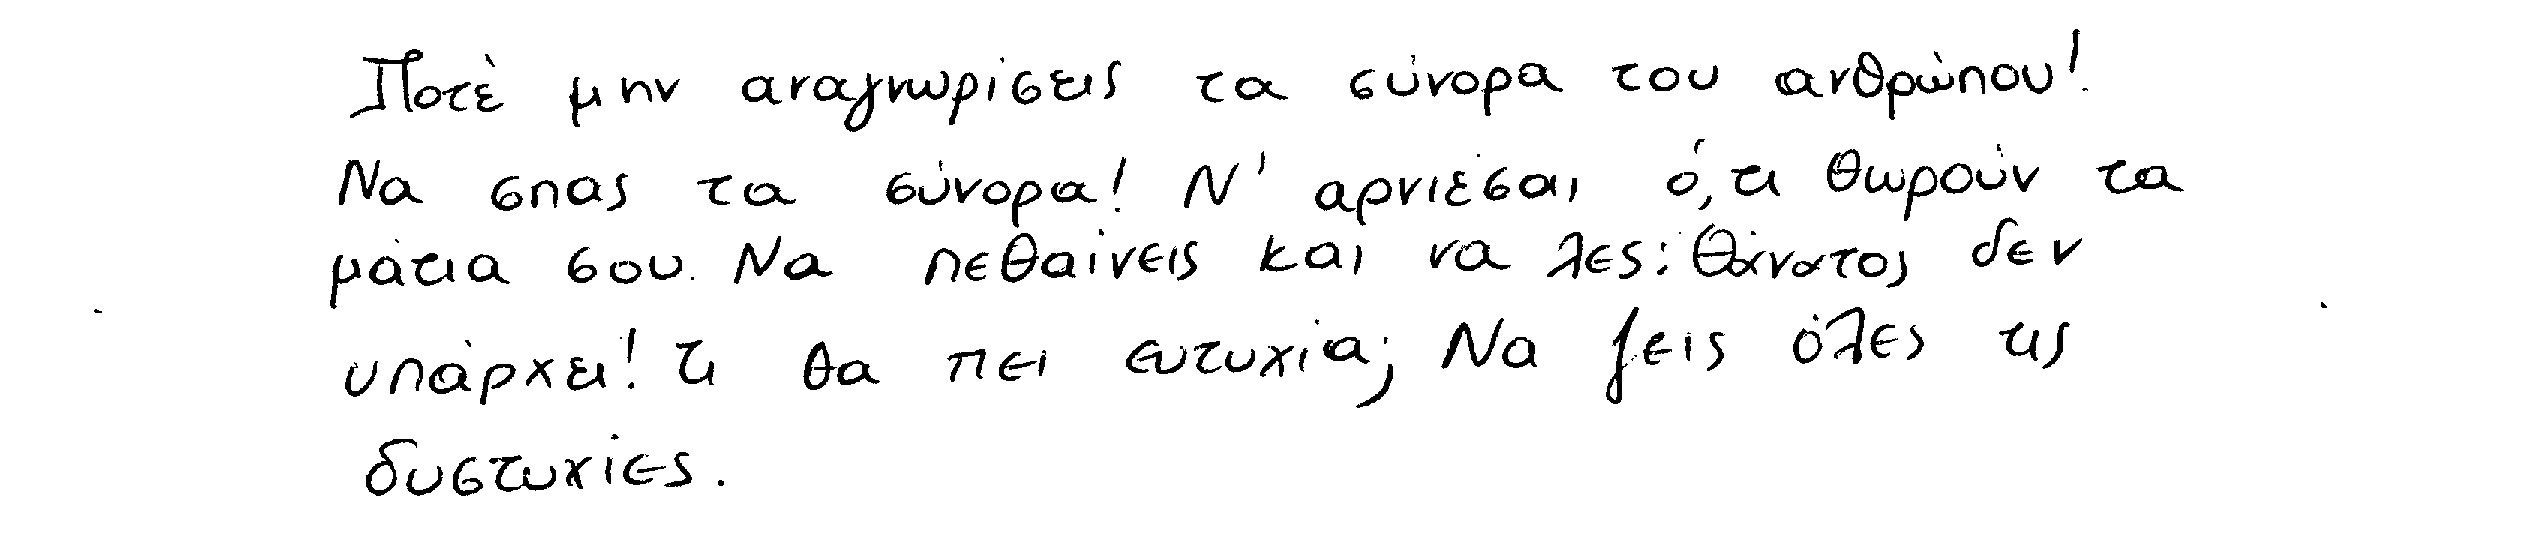 Ποτέ μην αναγνωρίσεις τα σύνορα του ανθρώπου!
Να σπας τα σύνορα! Ν' αρνιέσαι ό,τι θωρούν τα
μάτια σου. Να πεθαίνεις και να λες: θάνατος δεν
υπάρχει! Τι θα πει ευτυχία; Να ζεις όλες τις
δυστυχίες.